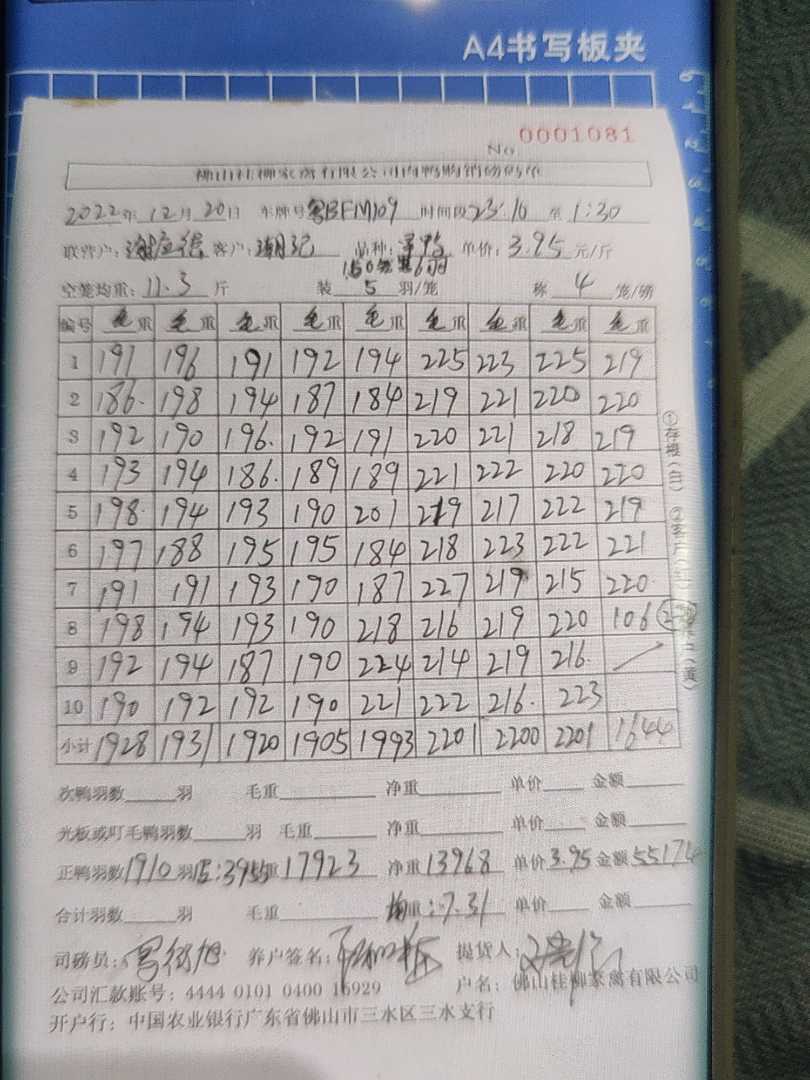 A4书写板夹
No 0001081
佛山桂柳家禽有限公司肉鸭购销磅码单
2022年 12月 20日 车牌号粤BFM109 时间段23:10 至 1:30
联营户: 客户:潮记 品种: 单价:3.95元/斤
150
空笼均重:11.3斤 装 5 羽/笼 称 4 笼/磅
编号 毛重 毛重 毛重 毛重 毛重 毛重 毛重 毛重 毛重
1 191 196 191 192 194 225 223 225 219
2 186. 198 194 187 184 219 221 220 220
3 192 190 196. 192 191 220 221 218 219
4 193 194 186. 189 189 221 222 220 220
5 198. 194 193 190 201 219 217 222 219
6 197 188 195 195 184 218 223 222 221
7 191 191 193 190 187 227 219 215 220.
8 198 194 193 190 218 216 219 220 106
9 192 194 187 190 224 214 219 216.
10 190 192 192 190 221 222 216. 223
小计 1928 1931 1920 1905 1993 2201 2200 2201 1644
次鸭羽数 羽 毛重 净重 单价 金额
光板或叮毛鸭羽数 羽 毛重 净重 单价 金额
正鸭羽数1910羽 :3955 重17923 净重13968 单价3.95金额55174
合计羽数 羽 毛重 均重:7.31 单价 金额
司磅员: 养户签名: 提货人:
公司汇款账号:4444 0101 0400 15929 户名:佛山桂柳家禽有限公司
开户行:中国农业银行广东省佛山市三水区三水支行
①存根(白) ②客户(红)
(黄)